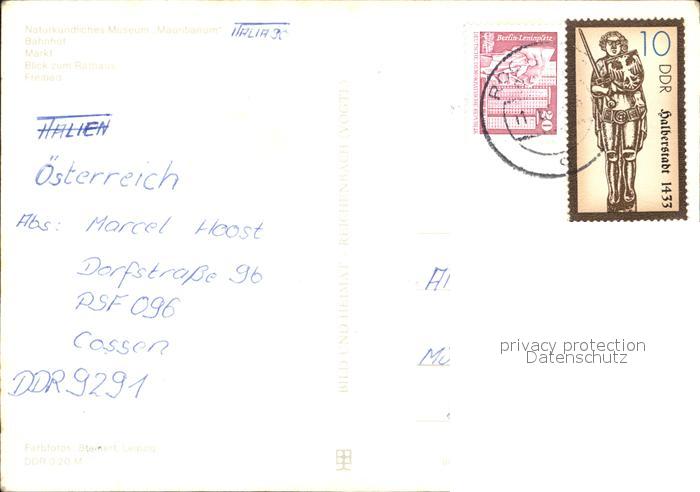 Naturkundliches Museum „Mauritianum"
Bahnhof
Markt
Blick zum Rathaus
Freibad
ITALIA 90
ITALIEN
Österreich
Abs: Marcel Hoost
Dorfstraße 96
PSF 096
Cossen
DDR 9291
Farbfotos: Beinert, Leipzig
DDR 0,20 M
BILD UND HEIMAT · REICHENBACH (VOGTL)
Berlin-Leninplatz
20
10
DDR
Halberstadt 1433
privacy protection
Datenschutz